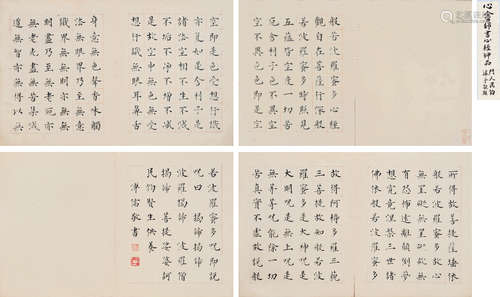 般若波羅蜜多心經
觀自在菩薩行深般
若波羅蜜多時照見
五蘊皆空度一切苦
厄舍利子色不異空
空不異色色即是空
空即是色受想行識
亦復如是舍利子是
諸法空相不生不滅
不垢不淨不增不減
是故空中無色無受
想行識無眼耳鼻舌
身意無色聲香味觸
法無眼界乃至無意
識界無無明亦無無
明盡乃至無老死亦
無老死盡無苦集滅
道無智亦無得以無
所得故菩提薩埵依
般若波羅蜜多故心
無罣礙無罣礙故無
有恐怖遠離顛倒夢
想究竟涅槃三世諸
佛依般若波羅蜜多
故得阿耨多羅三藐
三菩提故知般若波
羅蜜多是大神咒是
大明咒是無上咒是
無等等咒能除一切
苦真實不虛故說般
若波羅蜜多咒即說
咒曰 揭諦 揭諦
波羅揭諦 波羅僧
揭諦 菩提娑婆訶
民物賢生供養
溥儒敬書
心畬師書心經神品
門人